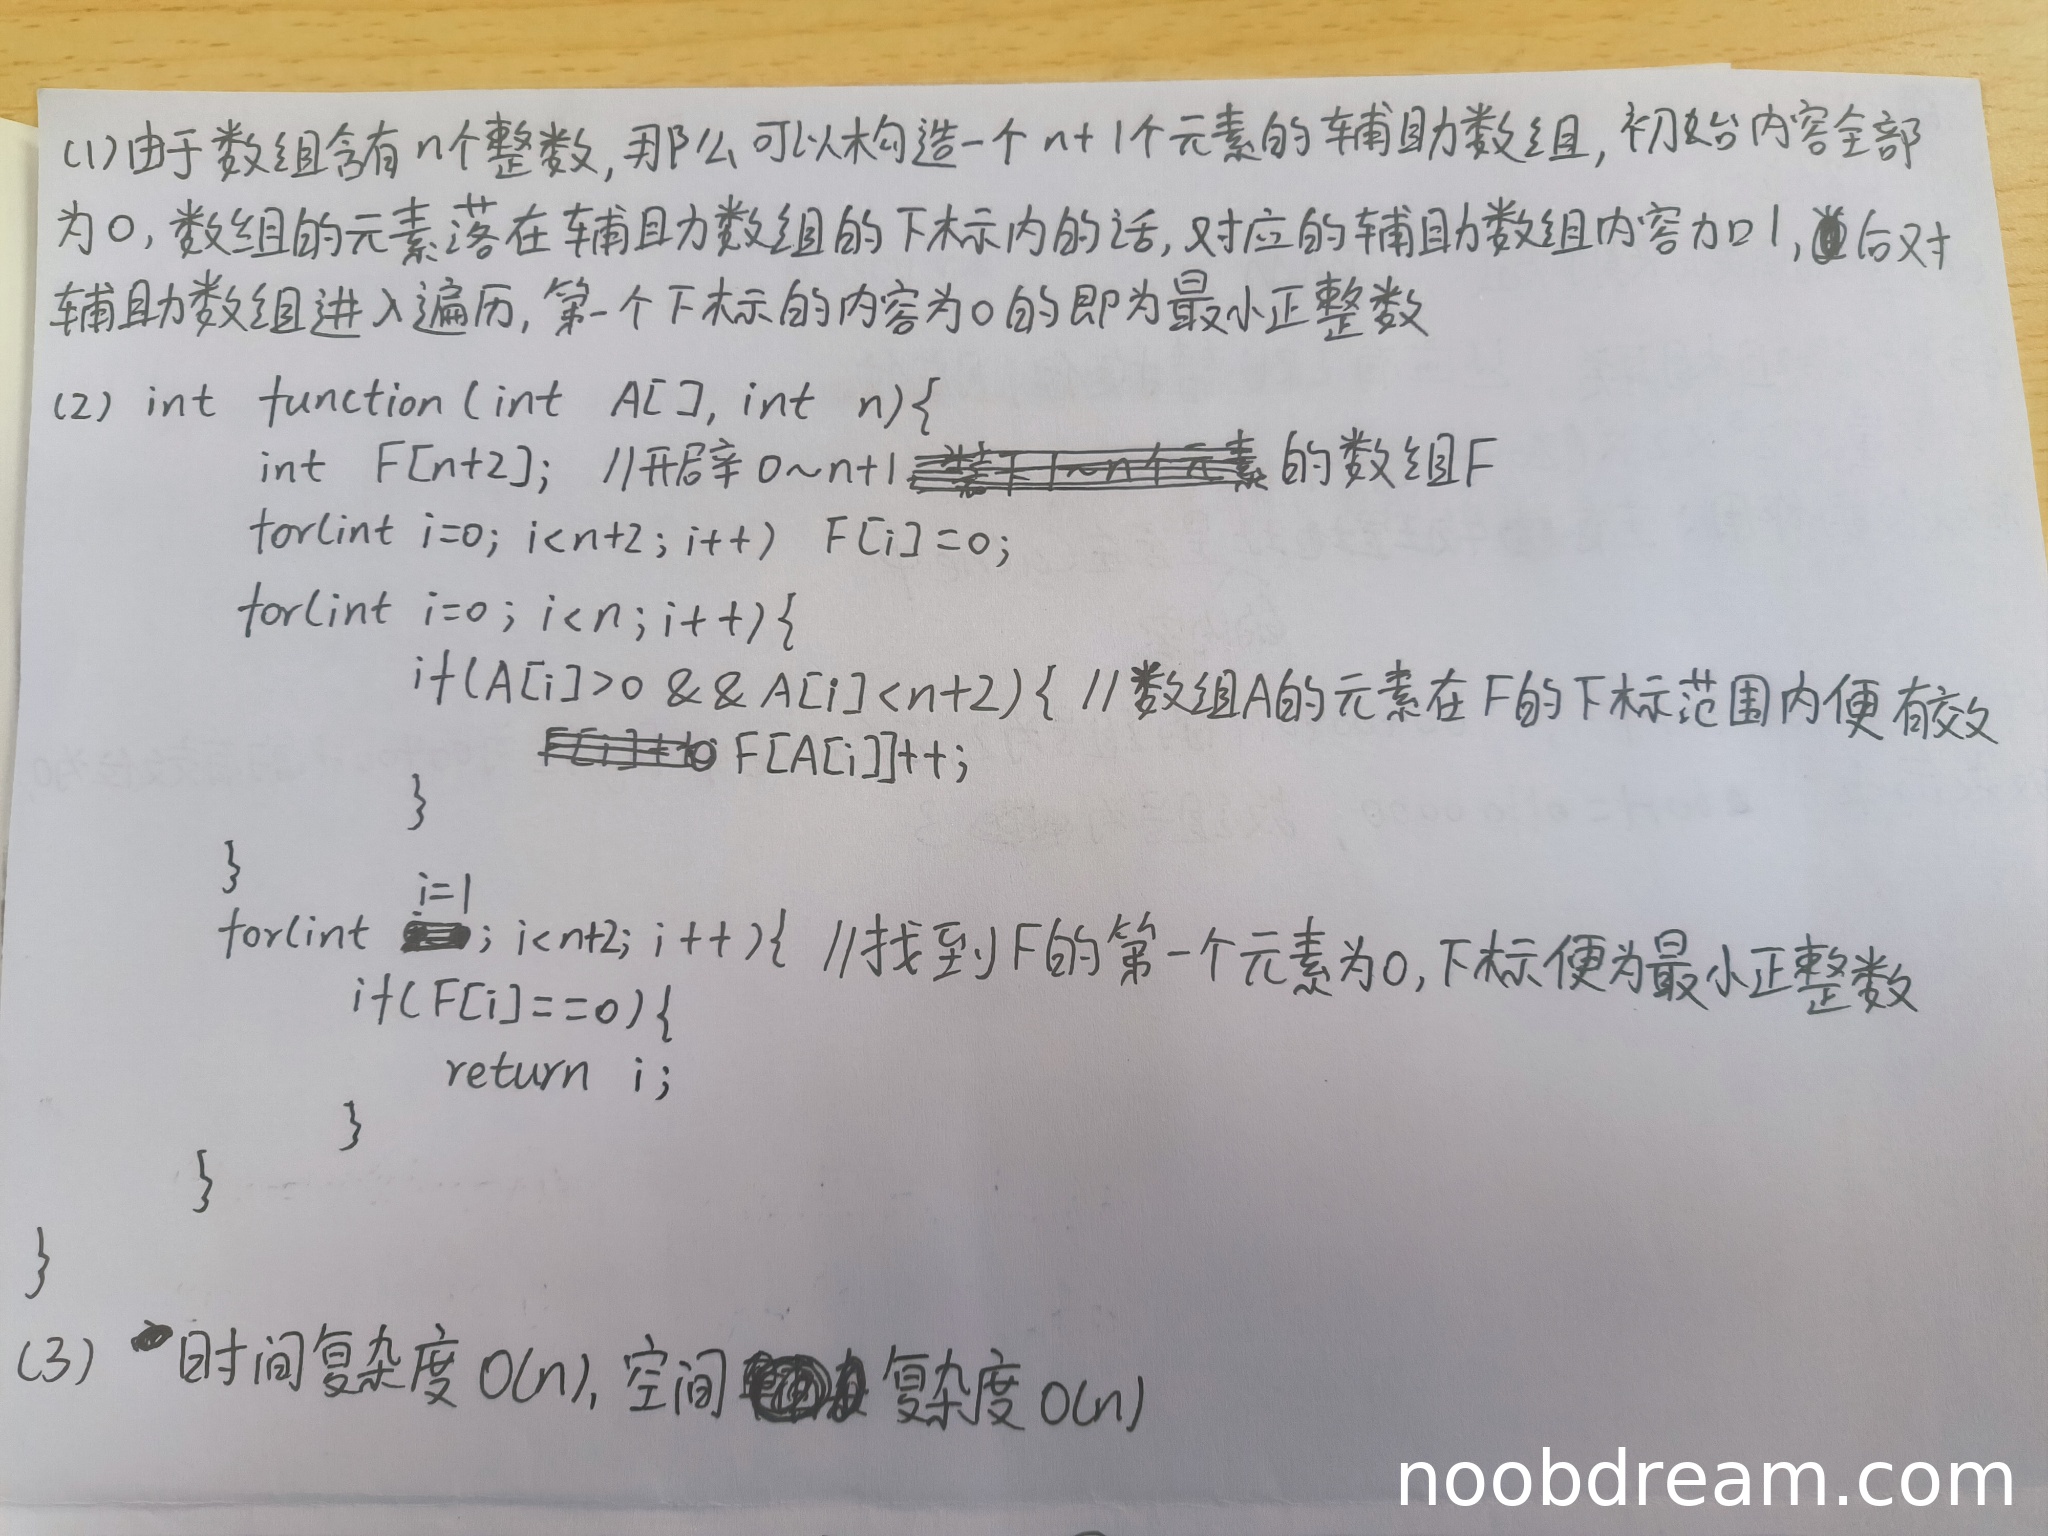 (1)由于数组含有n个整数,那么可以构造一个n+1个元素的辅助数组,初始内容全部
为0,数组的元素落在辅助数组的下标内的话,对应的辅助数组内容加1,后对
辅助数组进入遍历,第一个下标的内容为0的即为最小正整数
(2) int function(int A[], int n){
int F[n+2]; //开辟0~n+1 的数组F
for(int i=0; i<n+2; i++) F[i]=0;
for(int i=0; i<n; i++){
if(A[i]>0 && A[i]<n+2){ //数组A的元素在F的下标范围内便有效
F[A[i]]++;
}
}
for(int i=1; i<n+2; i++){ //找到F的第一个元素为0,下标便为最小正整数
if(F[i]==0){
return i;
}
}
}
(3) 时间复杂度O(n),空间复杂度O(n)
noobdream.com